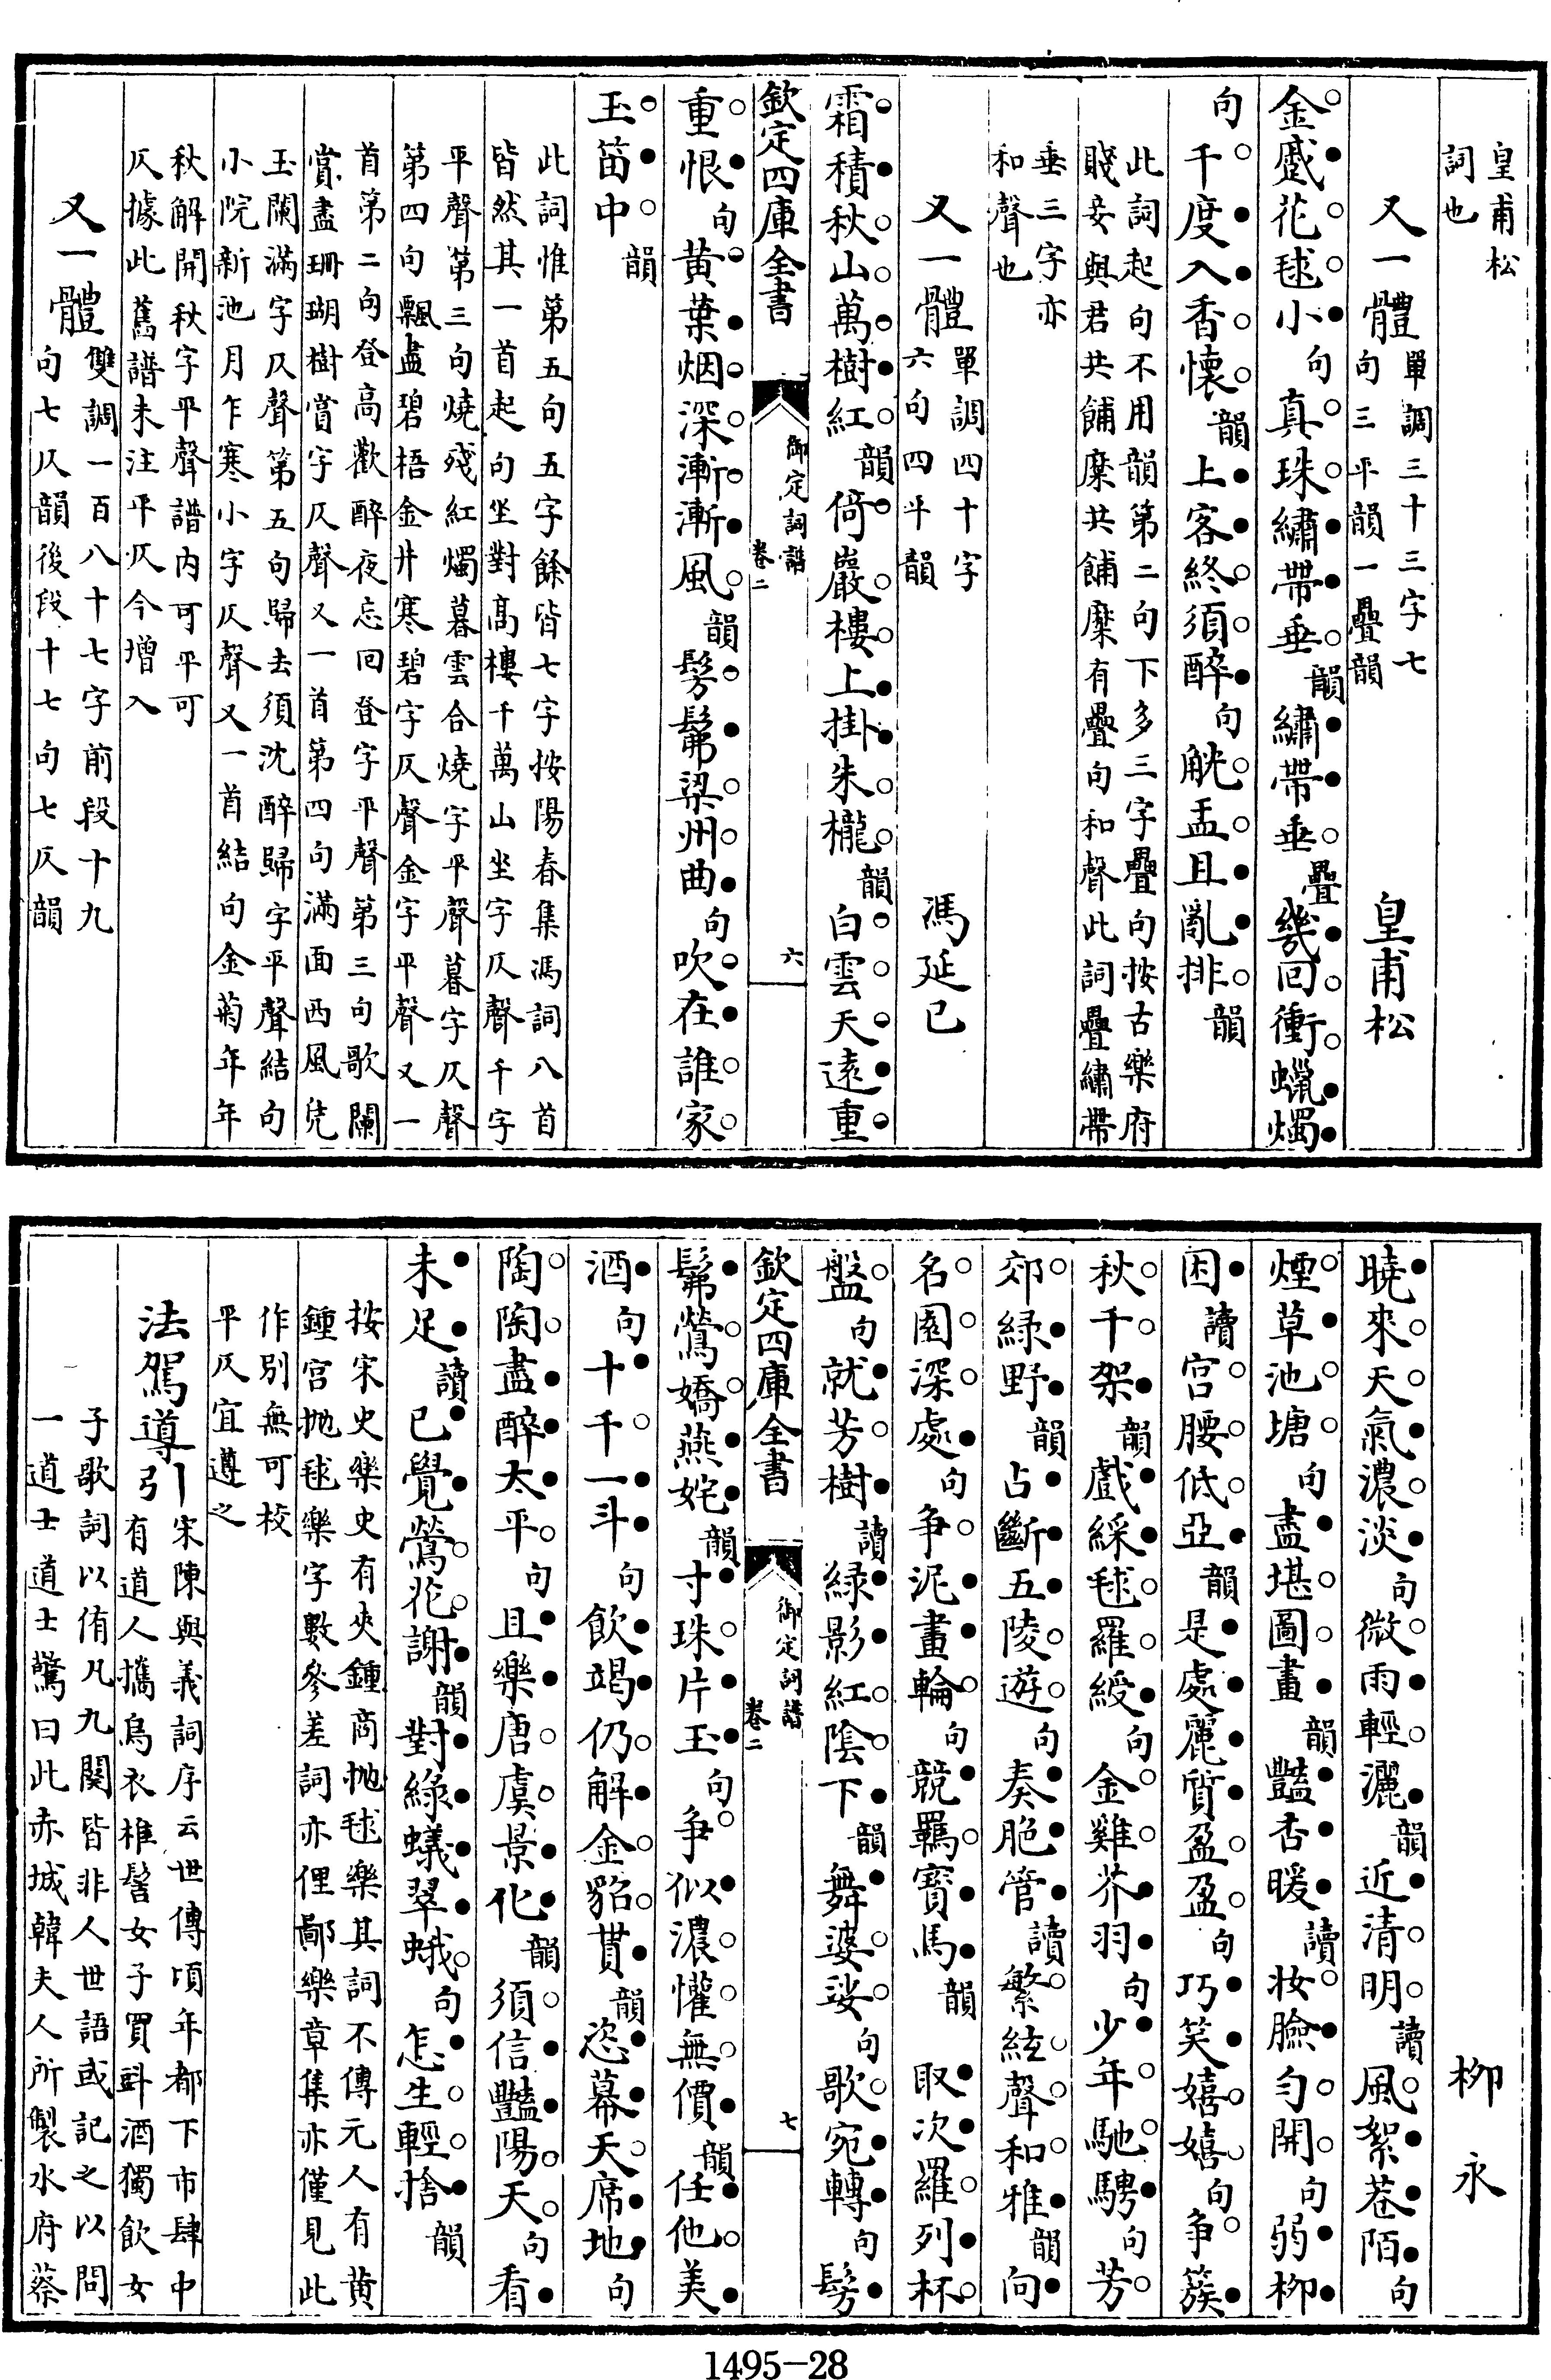 皇甫松
詞也
又一體
單調三十三字七
句三平韻一疊韻
皇甫松
金蹙花毬小句真珠繡帶垂韻繡帶垂疊幾回衝蠟燭
句千度入香懷韻上客終須醉句觥盂且亂排韻
此詞起句不用韻第二句下多三字疊句按古樂府
賤妾與君共餔糜共餔糜有疊句和聲此詞疊繡帶
垂三字亦
和聲也
又一體
單調四十字
六句四平韻
馮延已
霜積秋山萬樹紅韻倚巖樓上掛朱櫳韻白雲天遠重
欽定四庫全書
御定詞譜
卷二
六
重恨句黃葉烟深漸漸風韻髣髴梁州曲句吹在誰家
玉笛中韻
此詞惟第五句五字餘皆七字按陽春集馮詞八首
皆然其一首起句坐對高樓千萬山坐字仄聲千字
平聲第三句燒殘紅燭暮雲合燒字平聲暮字仄聲
第四句飄盡碧梧金井寒碧字仄聲金字平聲又一
首第二句登高歡醉夜忘回登字平聲第三句歌闌
賞盡珊瑚樹賞字仄聲又一首第四句滿面西風凭
玉闌滿字仄聲第五句歸去須沈醉歸字平聲結句
小院新池月乍寒小字仄聲又一首結句金菊年年
秋解開秋字平聲譜內可平可
仄據此舊譜未注平仄今增入
又一體
雙調一百八十七字前段十九
句七仄韻後段十七句七仄韻
柳永
曉來天氣濃淡句微雨輕灑韻近清明讀風絮巷陌句
煙草池塘句盡堪圖畫韻豔杏暖讀妝臉勻開句弱柳
困讀宮腰低亞韻是處麗質盈盈句巧笑嬉嬉句爭簇
秋千架韻戲綵毬羅綬句金雞芥羽句少年馳騁句芳
郊綠野韻占斷五陵遊句奏脆管讀繁絃聲和雅韻向
名園深處句爭泥畫輪句競羈寶馬韻取次羅列杯
盤句就芳樹讀綠影紅陰下韻舞婆娑句歌宛轉句髣
欽定四庫全書
御定詞譜
卷二
七
髴鶯嬌燕姹韻寸珠片玉句爭似濃懽無價韻任他美
酒句十千一斗句飲竭仍解金貂貰韻恣幕天席地句
陶陶盡醉太平句且樂唐虞景化韻須信豔陽天句看
未足讀已覺鶯花謝韻對綠蟻翠蛾句怎生輕捨韻
按宋史樂史有夾鍾商拋毬樂其詞不傳元人有黃
鍾宮拋毬樂字數參差詞亦俚鄙樂章集亦僅見此
作別無可校
平仄宜遵之
法駕導引
宋陳與義詞序云世傳頃年都下市肆中
有道人攜烏衣椎髻女子買㪷酒獨飲女
子歌詞以侑凡九闋皆非人世語或記之以問
一道士道士驚曰此赤城韓夫人所製水府蔡
1495-28